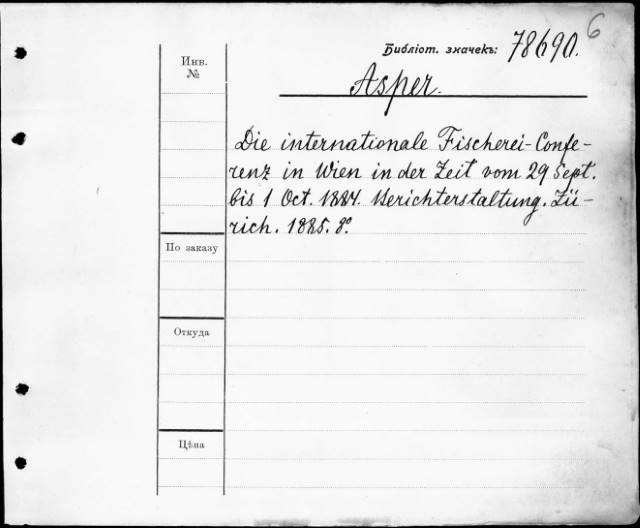 6
Библіот. значекъ: 78690.
Инв.
№
Asper.
Die internationale Fischerei-Confe-
renz in Wien in der Zeit vom 29 Sept.
bis 1 Oct. 1884. Berichterstaltung. Zü-
rich. 1885. 8°.
По заказу
Откуда
Цѣна